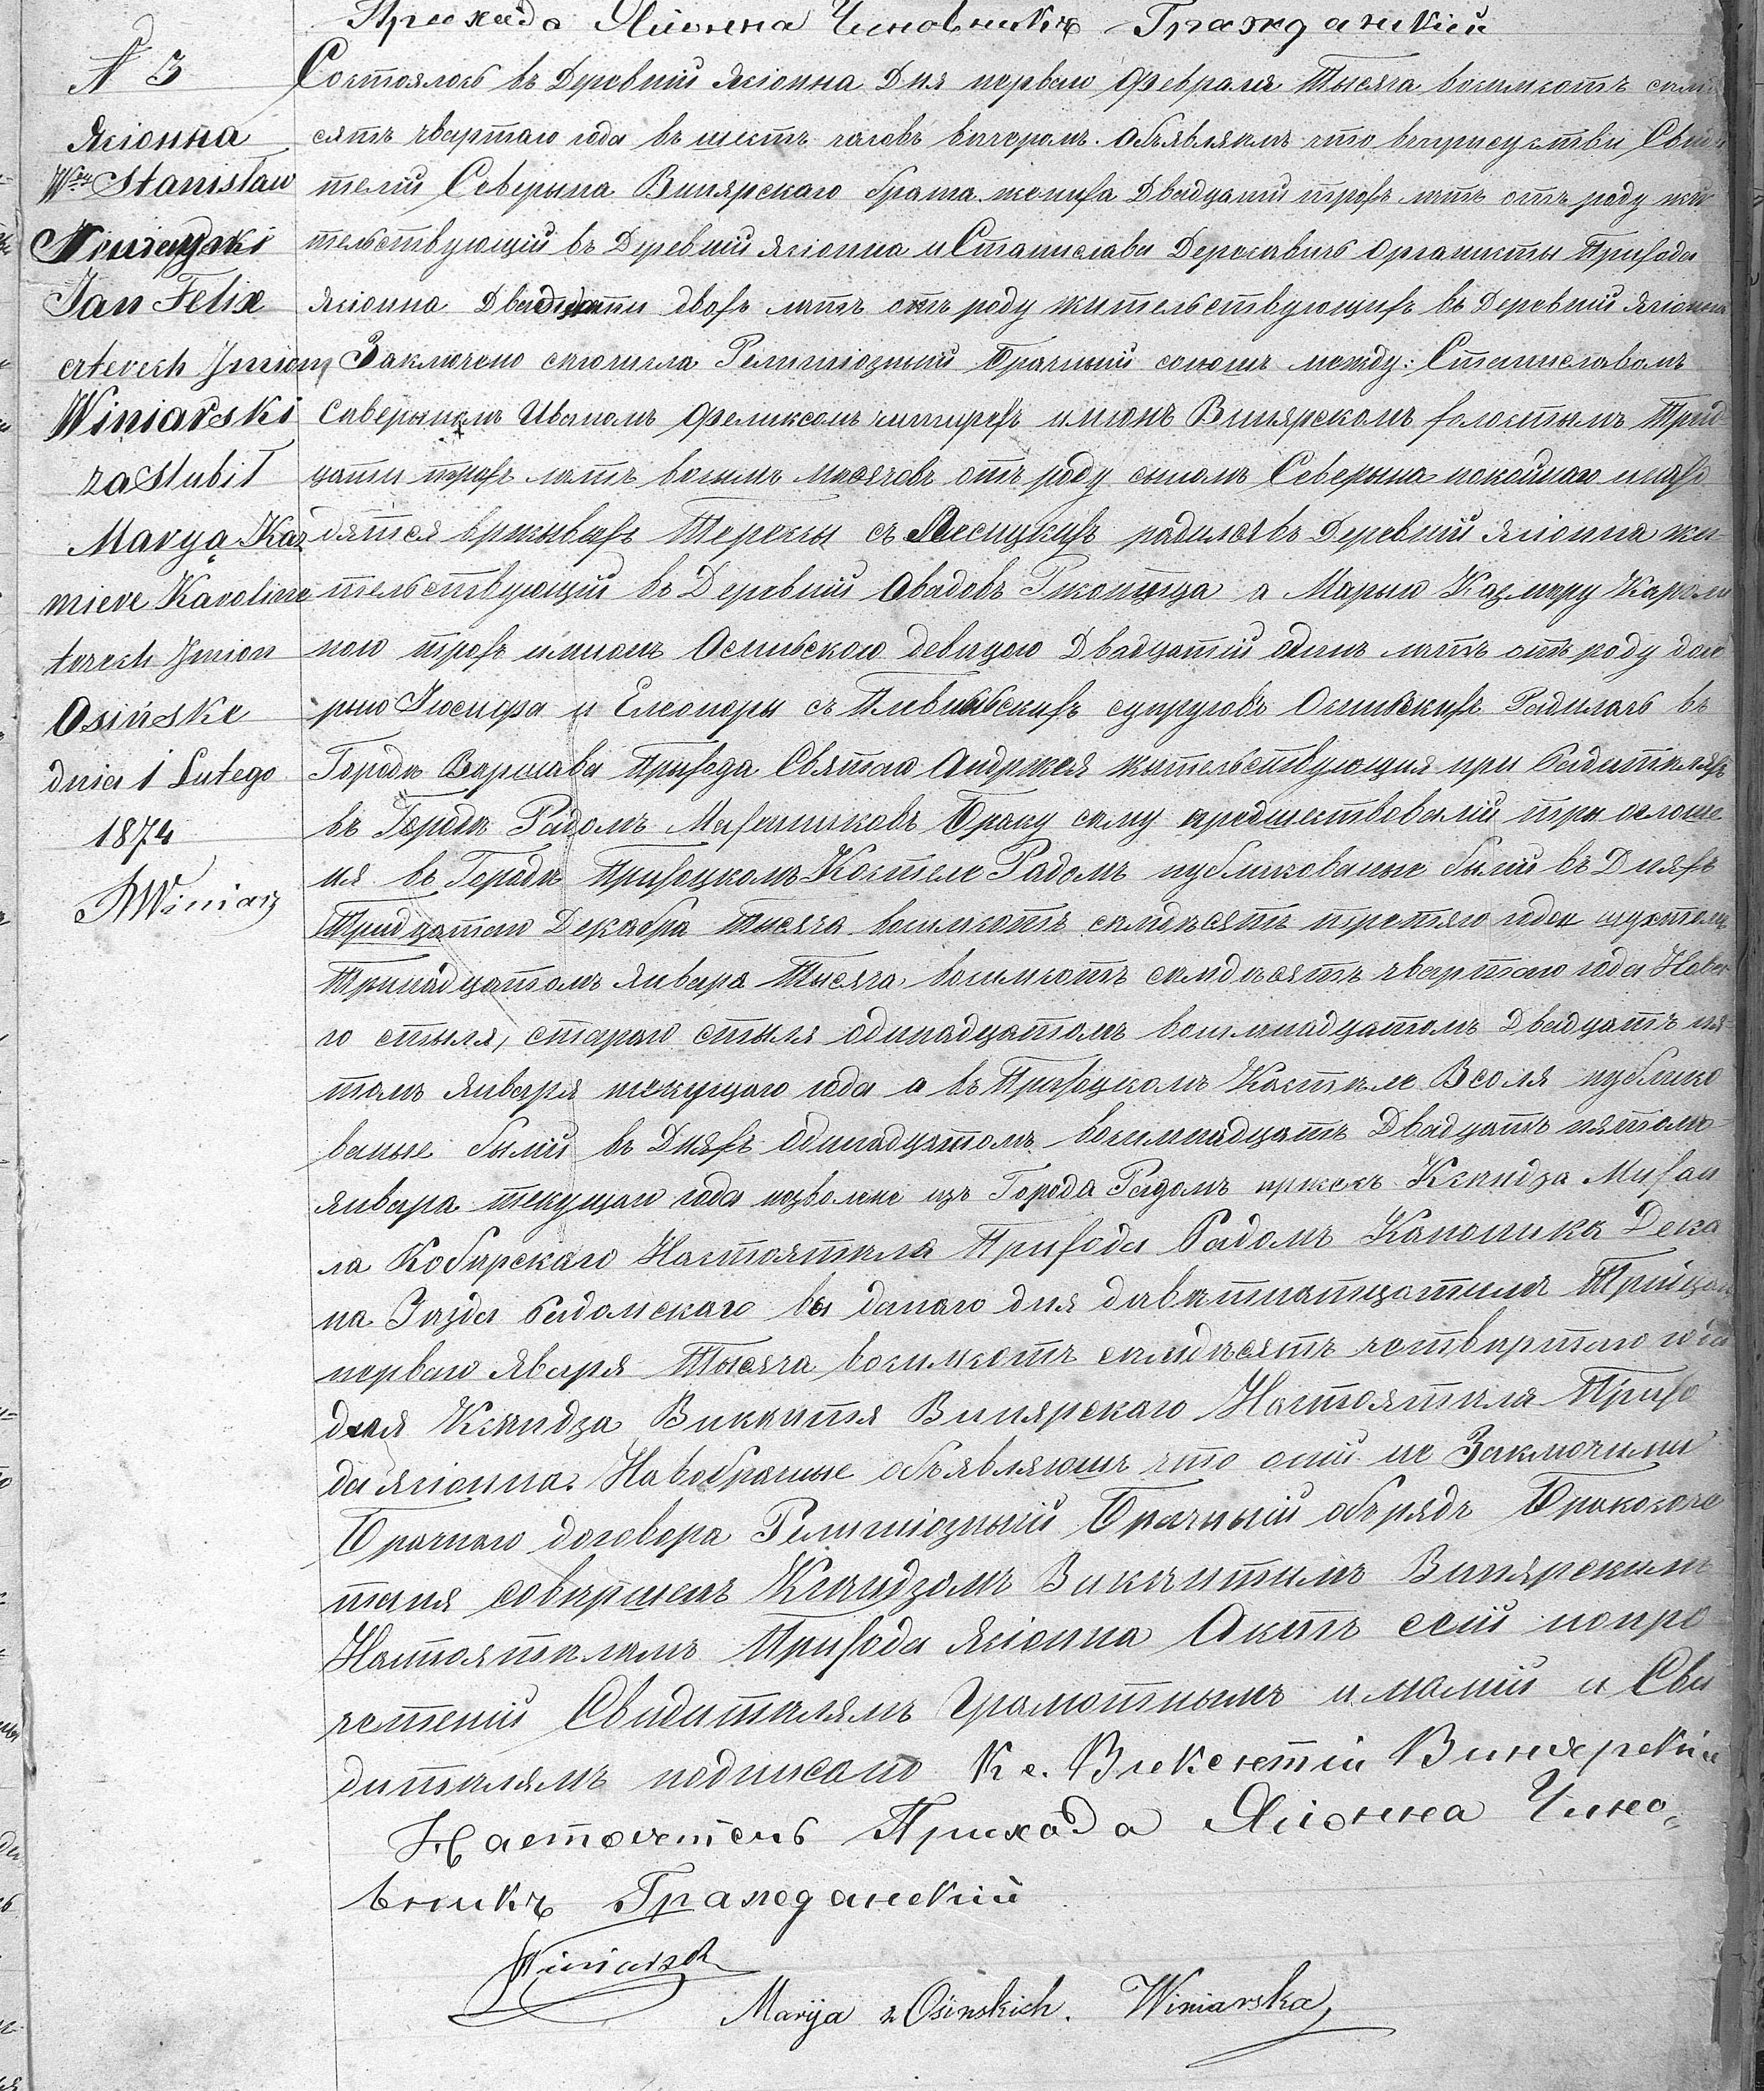 Прихода Ясіонна Чиновникъ Гражданскій
N 3
Ясіонна
Stanisław
Winiarski
Jan Felix
czterech Jmion
Winiarski
zaślubił
Maryą Kaz
miere Karoline
trzech Jmion
Osińske
dnia 1 Lutego
1874
Состоялось въ Деревнии Ясіонна Дня перваго Февраля Тысяча восимсотъ семд
сятъ чвартаго года въ шесть часовъ вечеромъ. Объявляемъ что въ присуствіи Свид
тели Северына Винярскаго брата жениха Двадцати трехъ летъ отъ роду жи
тельствующій въ Деревнии Ясіонна и Станислава Органисты Прихода
Ясіонна Двадцати двохъ летъ отъ роду жительствующихъ въ Деревнии Ясіонна
Заключено Религіозный Брачный союзъ между: Станиславомъ
Северыномъ Иваномъ Феликсомъ чтырехъ имюнъ Винярскомъ холостымъ Трид
цати трехъ летъ восимъ месяцовъ отъ роду сыномъ Северына покойнаго и нахо
дятся вживыхъ Терезы съ родился въ Деревнии Ясіонна жи
тельствующій въ Деревнии а Марыю Казмиру Кароли
ною трохъ имионъ Осиньскою девицою Двадцатии одинъ летъ отъ роду доч
рью Іосифа и Елеоноры съ супруговъ Осинскихъ Радилась въ
Городе Варшава Прихода Святаго Анджея жительствующия при Радителяхъ
въ Городе Радомъ Браку сему предшествовали три оглоше
ния въ Городе Приходскомъ Костеле Радомъ публикованые были въ Дняхъ
Тридцатаго Декабра Тысяча восимсотъ семдесятъ третяго года шустомъ
Тринадцатомъ Января Тысяча восимсотъ семдесятъ чвартаго года Ново
го стыля, стараго стыля одинадцатомъ восимнадцатомъ Двадцатъ пя
томъ Января текущаго года а въ Приходскомъ Костеле Всоля публико
ваные были въ Дняхъ Одинадцатомъ восимнадцатъ Двадцатъ пятомъ
Января текущаго года позволене изъ Города Радомъ Ксендза Михаи
ла Кобирскаго Настоятеля Прихода Радомъ Каноника Дека
на Радомскаго данаго дня Трицать
перваго Января Тысяча восимсотъ семдисятъ четвертаго года
для Ксендза Викентія Винярскаго Настоятеля Прихо
да Ясіонна. Новобрачные объявляютъ что они не Заключили
Брачнаго договора Религіозный Брачный обрядъ Бракосоче
тания совиршенъ Ксендзомъ Викентимъ Винярскимъ
Настоятелемъ Прихода Ясіонна Актъ сей попро
чтении Свидителямъ Грамотнымъ и нами и Сви
дителямъ подписано Кс. Викентій Винярскій
Настоятель Прихода Ясіонна Чино-
вникъ Гражданскій
Winiarsk
Marija z Osinskich. Winiarska